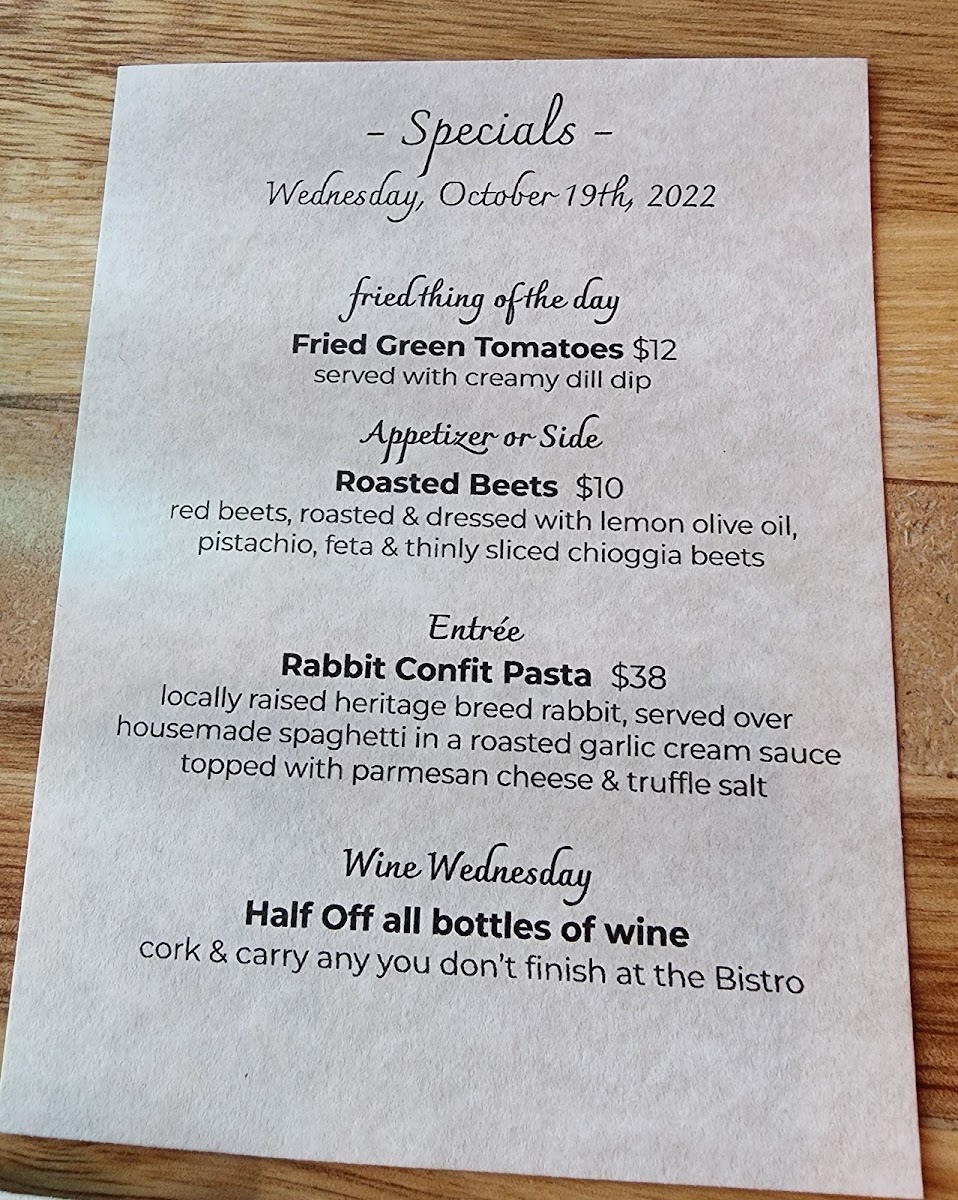 - Specials -
Wednesday, October 19th, 2022
fried thing of the day
Fried Green Tomatoes $12
served with creamy dill dip
Appetizer or Side
Roasted Beets $10
red beets, roasted & dressed with lemon olive oil,
pistachio, feta & thinly sliced chioggia beets
Entrée
Rabbit Confit Pasta $38
locally raised heritage breed rabbit, served over
housemade spaghetti in a roasted garlic cream sauce
topped with parmesan cheese & truffle salt
Wine Wednesday
Half Off all bottles of wine
cork & carry any you don't finish at the Bistro